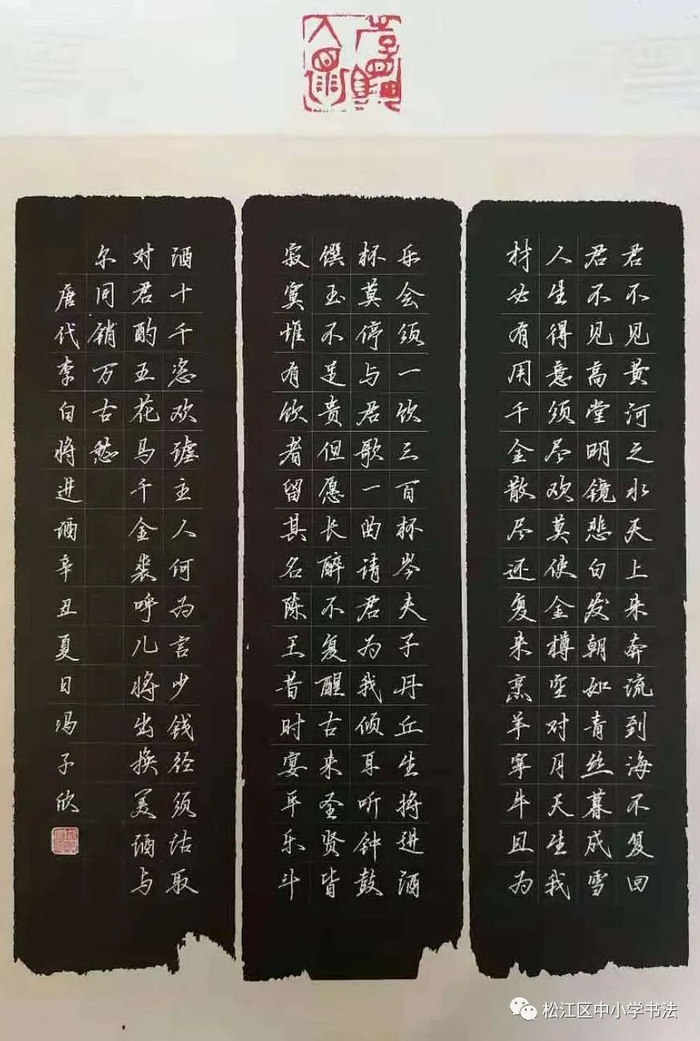 君不见黄河之水天上来奔流到海不复回
君不见高堂明镜悲白发朝如青丝暮成雪
人生得意须尽欢莫使金樽空对月天生我
材必有用千金散尽还复来烹羊宰牛且为
乐会须一饮三百杯岑夫子丹丘生将进酒
杯莫停与君歌一曲请君为我倾耳听钟鼓
馔玉不足贵但愿长醉不复醒古来圣贤皆
寂寞惟有饮者留其名陈王昔时宴平乐斗
酒十千恣欢谑主人何为言少钱径须沽取
对君酌五花马千金裘呼儿将出换美酒与
尔同销万古愁
唐代李白将进酒辛丑夏日冯子欣
松江区中小学书法